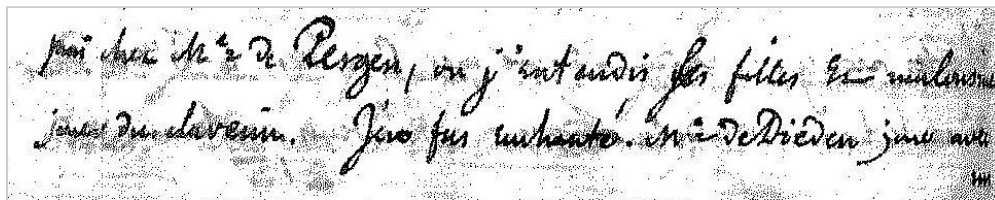 puis chez Me de Pergen, ou j'entendis ses filles et
jouer du clavecin. J'en fus enchanté. Me de Dieden joue avec